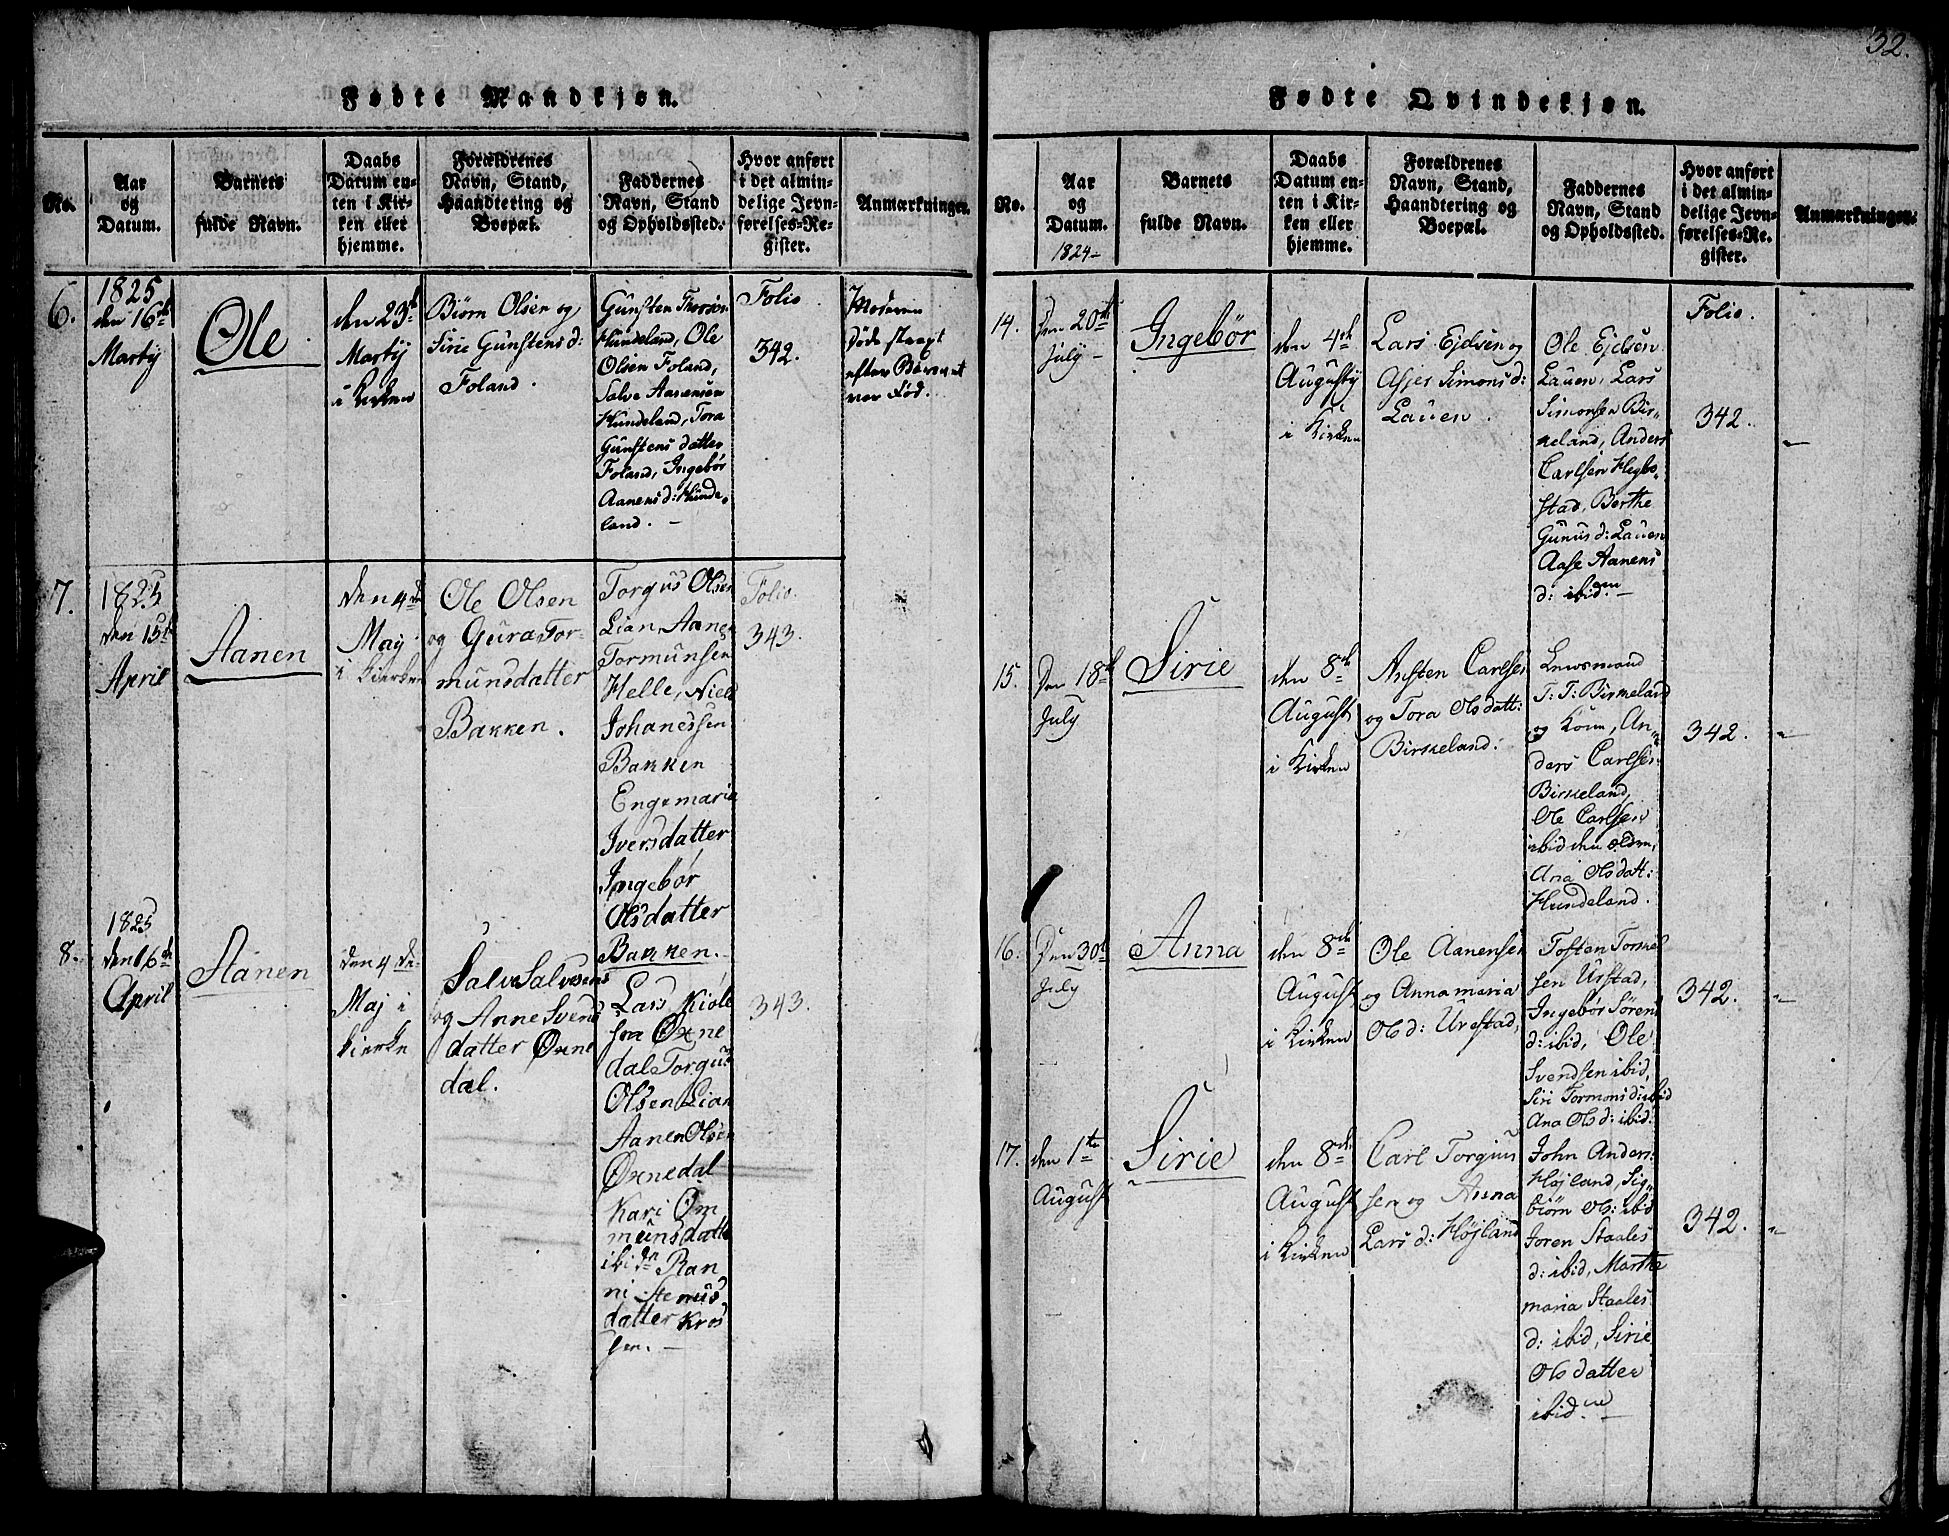 32.
Fødte Mandkjøn.
No.
Aar
og
Datum.
Barnets
fulde Navn.
Daabs
Datum en-
ten i Kir-
ken eller
hjemme.
Forældrenes
Navn, Stand,
Haandtering og
Boepæl.
Faddernes
Navn, Stand
og Opholdssted.
Hvor anført
i det almin-
delige Jevn-
førelses-Re-
gister.
Anmærkninger.
6.
1825
den 16de
Martÿ
Ole
den 23de
Martÿ
i Kirken
Biørn Olsen og
Sirie Gunstens d:
Foland.
Gunsten
Hundeland, Ole
Olsen Foland,
Salve Aanensen
Hundeland, Tora
Gunstens datter
Foland, Ingebør
Aanens d: Hunde-
land. -
Folio
342.
Moderen
døde stragt
efter Barnet
var Fød.
7.
1825
den 15de
April
Aanen
den 4de
Maÿ
i kierken
Ole Olsen
og Gura Tor-
munsdatter
Bakken.
Torgus Olsen
Lian Aanen
Tormunsen
Helle, Niels
Johanessen
Bakken
Engemaria
Iversdatter
Ingebør
Olsdatter
Bakken.
Folio.
343.
8.
1825
den 16de
April
Aanen
den 4de
Maj i
kierke
Salve Salvesens
og Anne Svends
datter Øxne
dal.
Lars Kiøle
fra Øxne
dal Torgus
Olsen Lian
Aanen Olsen
Øxnedal
Kari Om
munsdatter
ibidn Ran
ni Stenus
datter Kros
sen. -
343.
Fødte Qvindekjøn.
No.
Aar
og
Datum.
1824-
Barnets
fulde Navn.
Daabs
Datum en-
ten i Kir-
ken eller
hjemme.
Forældrenes
Navn, Stand,
Haandtering og
Boepæl.
Faddernes
Navn, Stand
og Opholdssted.
Hvor anført
i det almin-
delige Jevn-
førelses-Re-
gister.
Anmærkninger.
14.
Den 20de
July -
Ingebør
den 4de
Augustÿ
i Kirken
Lars Ejdsen og
Asjer Simons d:
Lauen.
Ole Ejdsen
Lauen, Lars
Simonsen Bir-
keland, Anders
Carlsen Hegbo-
stad, Berthe
Gunus d: Lauen
Aase Aanens
d: ibidem -
Folio.
342.
-
15.
Den 18de
July
Sirie
den 8de
August
i Kirken
Austen Carlsen
og Tora Olsdatt:
Birkeland.
Lensmand
T: T: Birkeland
og Kone, An-
ders Carlsen
Birkeland,
Ole Carlsen
ibid den ældre,
Ana Olsdatt:
Hundeland.
342.
"
16.
Den 30te
July
Anna
den 8de
August
i Kirken
Ole Aanensen
og Annamaria
Ols d: Urstad,
Tosten Torkel
sen Urstad,
Ingebør Sørens
d: ibid, Ole
Svendsen ibid,
Siri Tormons d: ibid
Ana Ols d: ibid.
342.
"
17.
den 1te
August
Sirie
den 8de
August
i Kirken
Carl Torgius
sen og Anna
Lars d: Højland
John Anders:
Højland, Sig-
biørn Ols: ibid
Joren Staales
d: ibid, Marthe
maria Staales
d: ibid, Sirie
Olsdatter
ibid.
342.
"